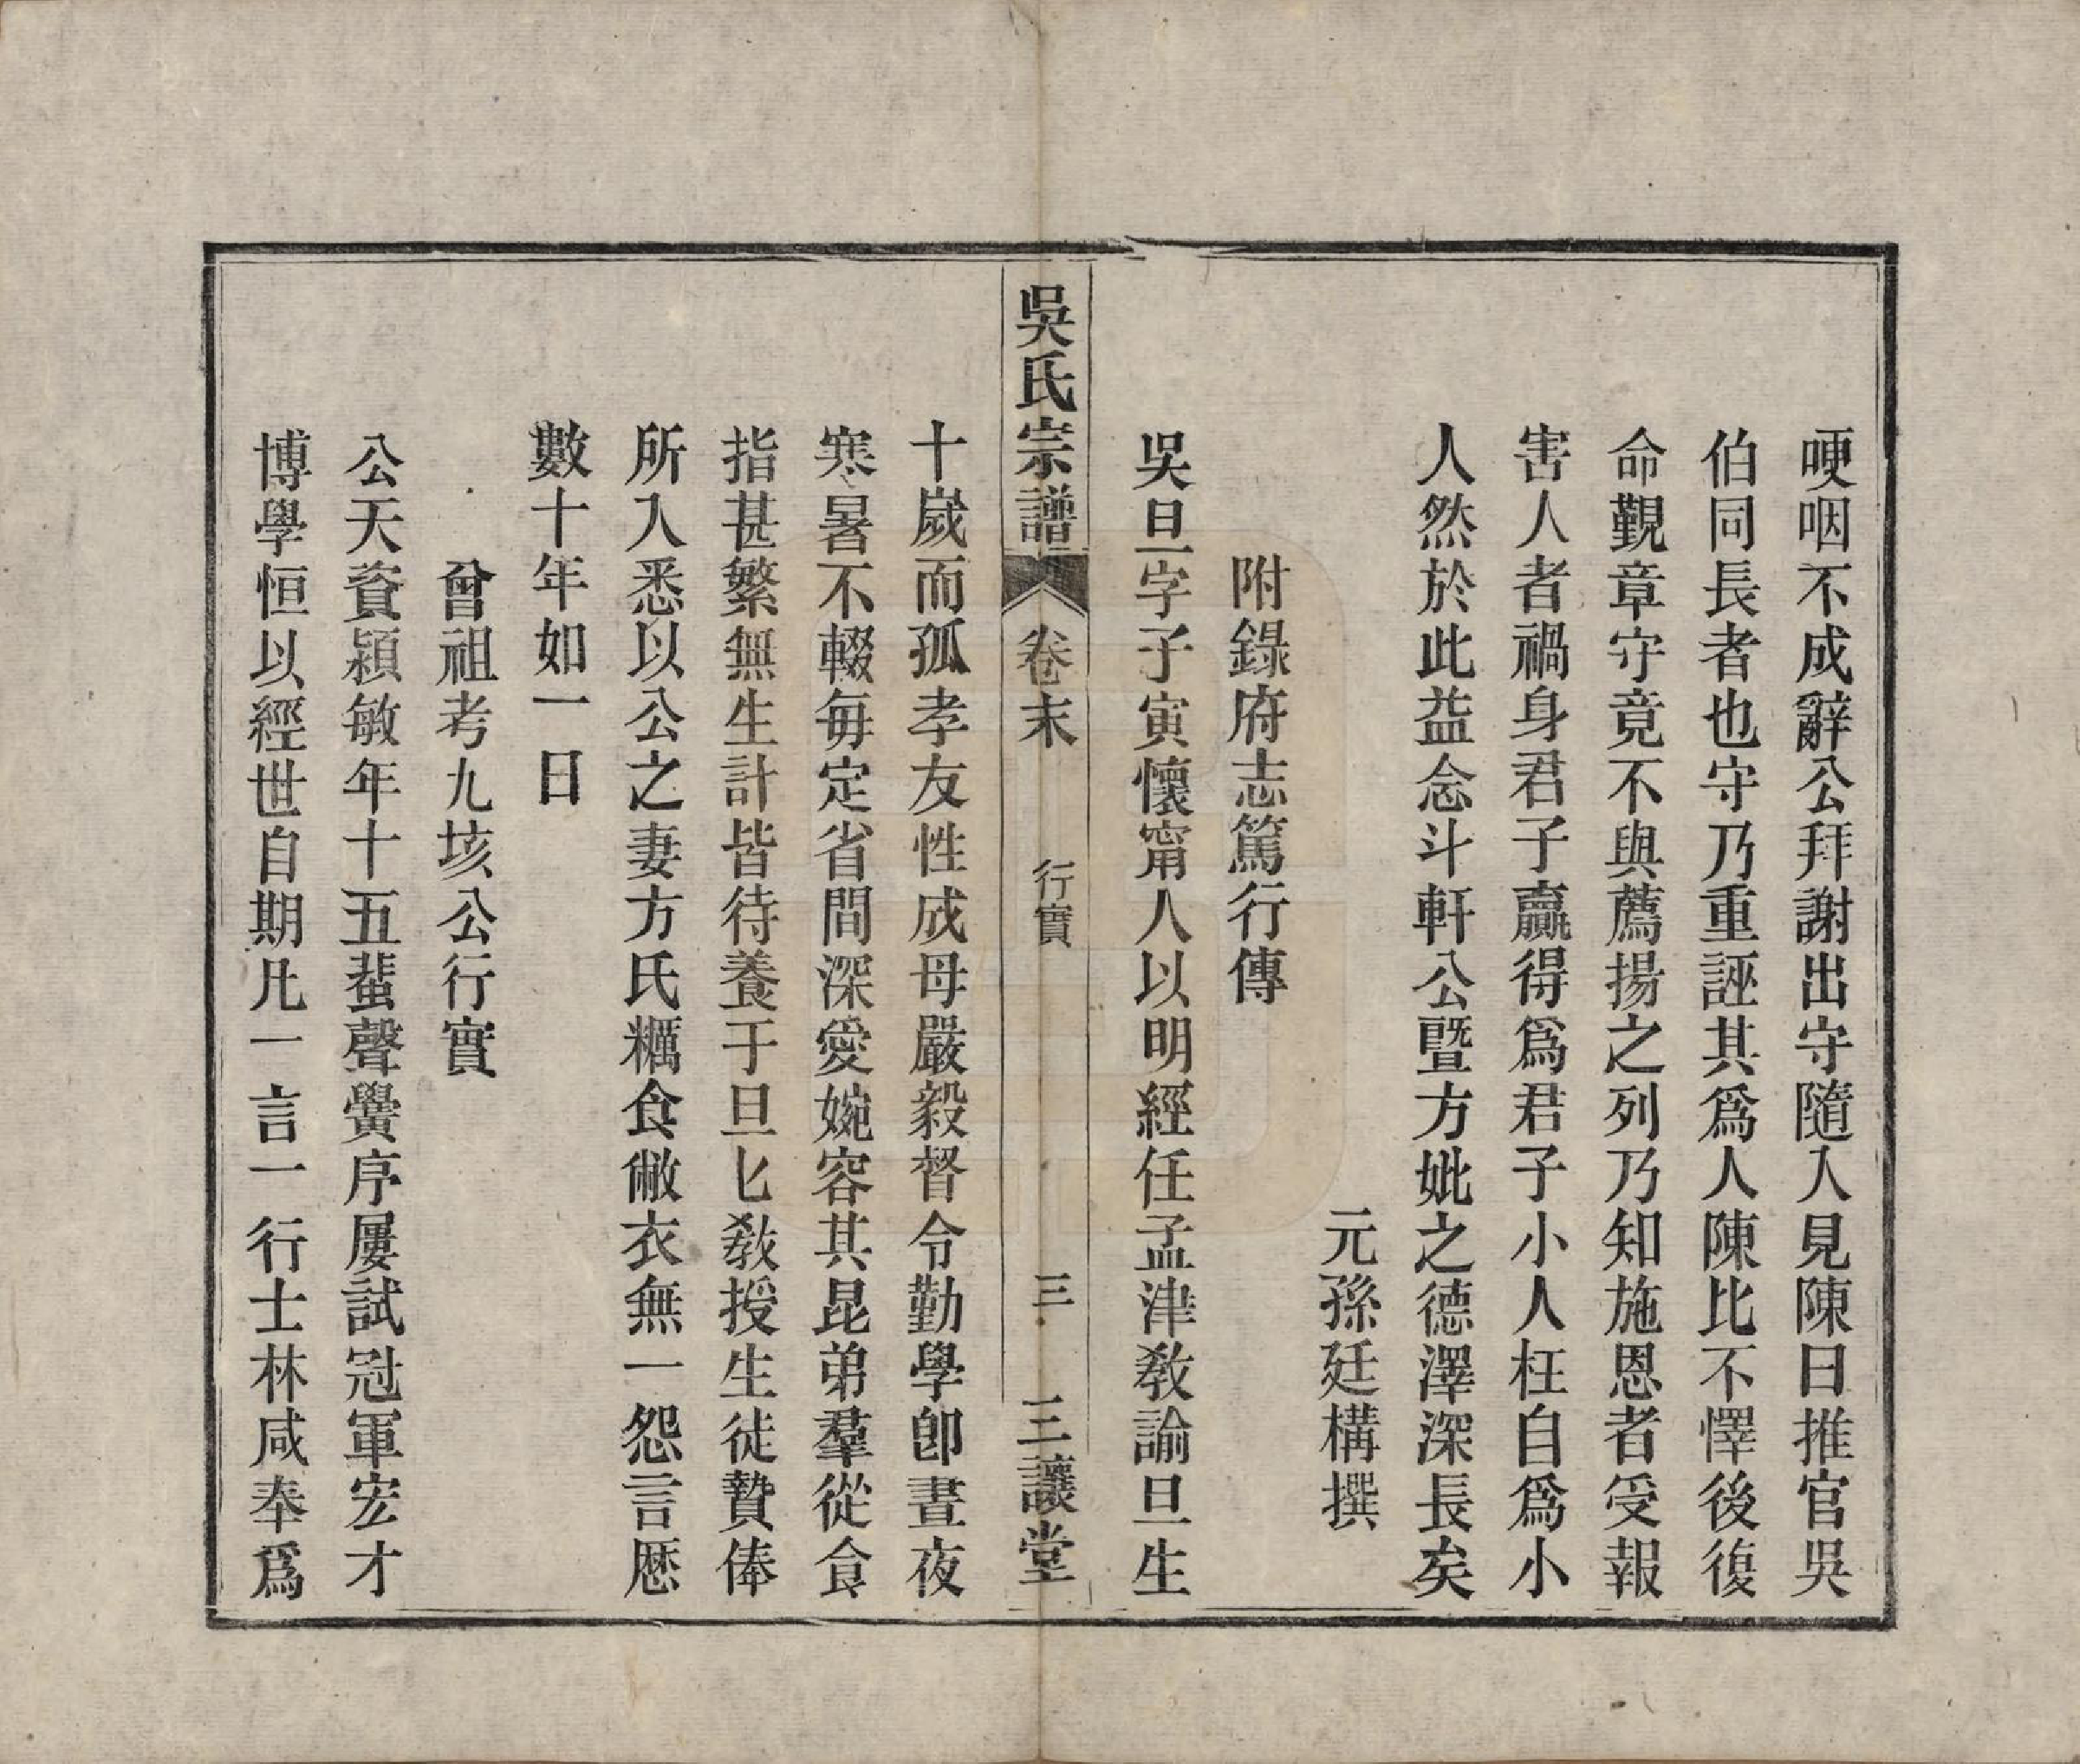 哽咽不成辭公拜謝出守隨入見陳曰推官吳
伯同長者也守乃重誣其爲人陳比不懌後復
命覲章守竟不與薦揚之列乃知施恩者受報
害人者禍身君子贏得爲君子小人枉自爲小
人然於此益念斗軒公暨方妣之德澤深長矣
元孫廷構撰
附錄府志篤行傳
吳旦字子寅懷甯人以明經任孟津教諭旦生
吳氏宗譜 卷末 行實 三 三讓堂
十歲而孤孝友性成母嚴毅督令勤學卽晝夜
寒暑不輟每定省問深愛婉容其昆弟羣從食
指甚繁無生計皆待養于旦匕教授生徒贄俸
所入悉以公之妻方氏糲食敝衣無一怨言歷
數十年如一日
曾祖考九垓公行實
公天資穎敏年十五蜚聲黌序屢試冠軍宏才
博學恒以經世自期凡一言一行士林咸奉爲